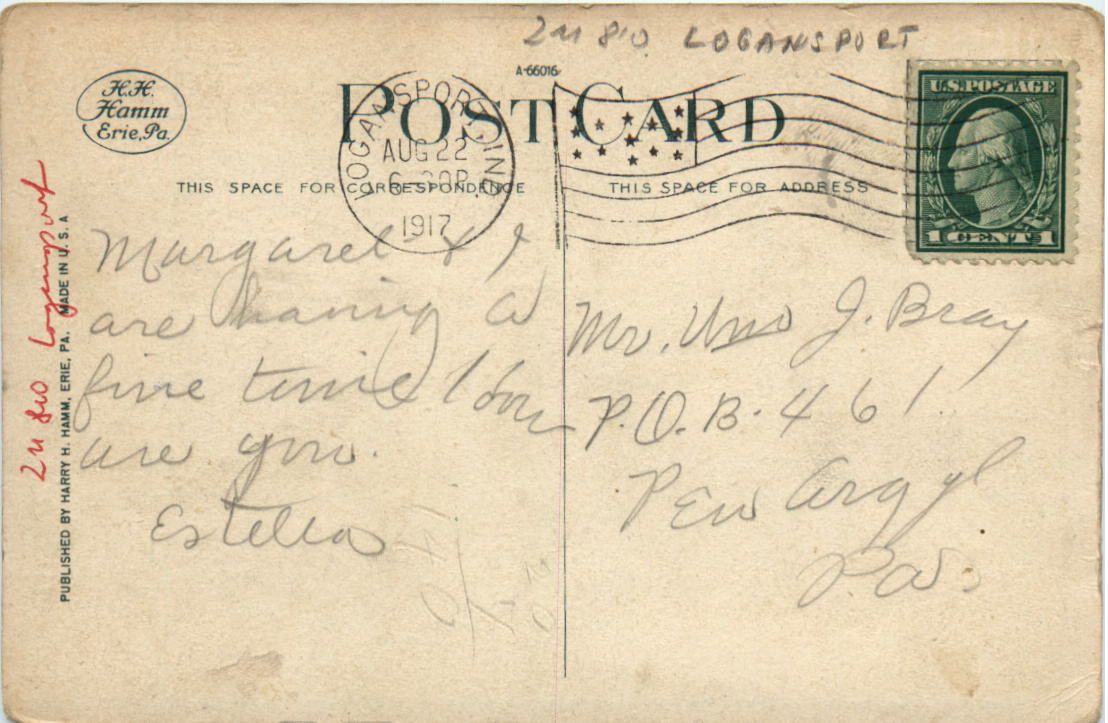 LOGANSPORT
A-66016
H.H.
Hamm
Erie, Pa.
POST CARD
LOGANSPORT, IND.
AUG 22
6-30P
1917
U.S. POSTAGE
1 CENT 1
THIS SPACE FOR CORRESPONDENCE
THIS SPACE FOR ADDRESS
Margaret & I
are having a
fine time how
are you.
Estella
Mr. Wm J. Bray
P.O.B. 461.
Pen Argyl
Pa.
Logansport
PUBLISHED BY HARRY H. HAMM, ERIE, PA. MADE IN U.S.A